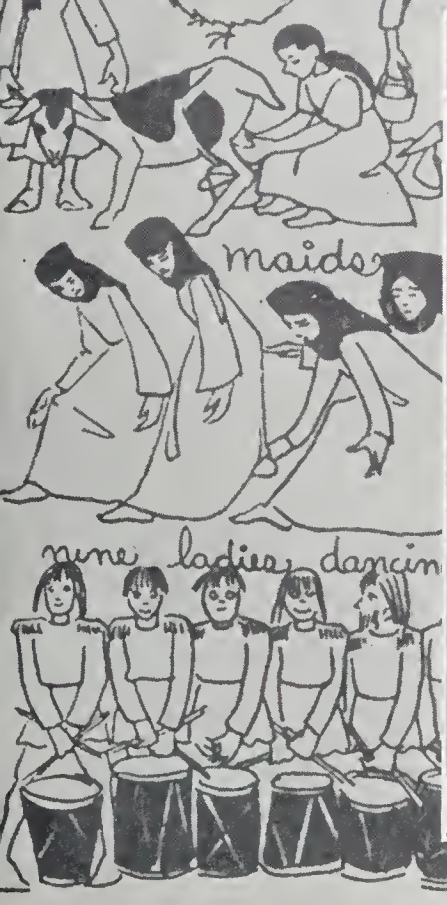 maids
nine ladies dancin